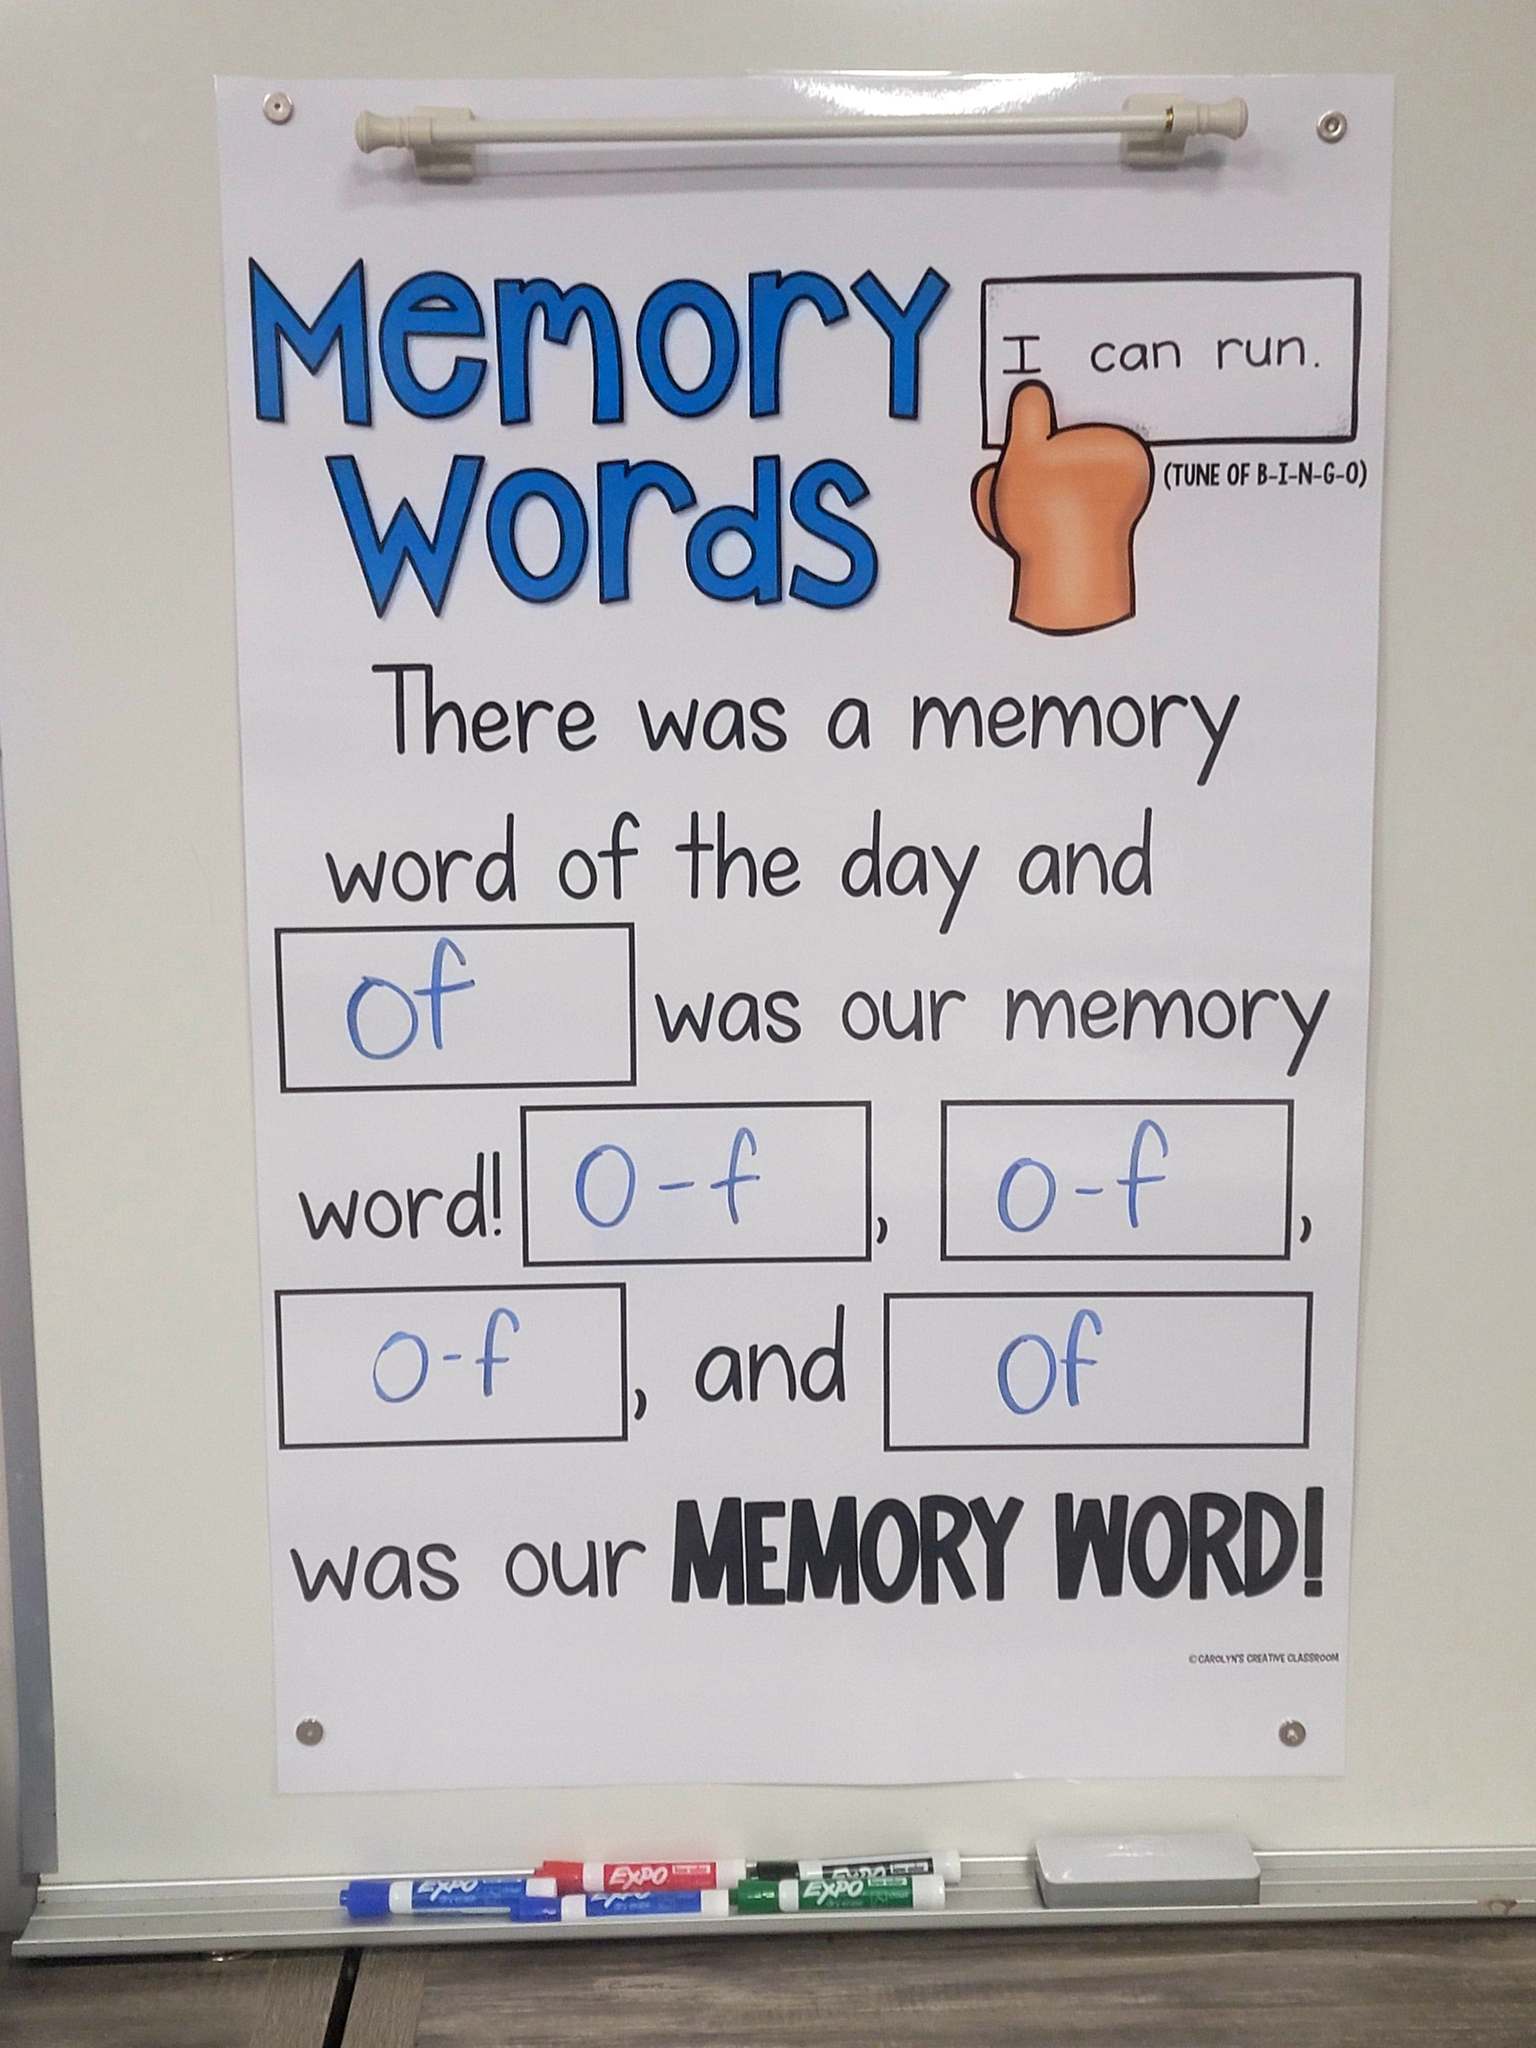 Memory
Words
I can run.
(TUNE OF B-I-N-G-O)
There was a memory
word of the day and
of was our memory
word! o-f, o-f,
o-f, and of
was our MEMORY WORD!
©CAROLYN'S CREATIVE CLASSROOM
EXPO
EXPO
EXPO
EXPO
EXPO